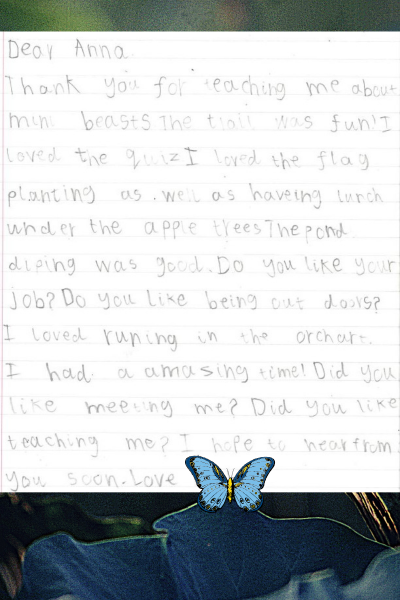 Dear Anna
Thank you for teaching me about
mini beasts The trail was fun! I
loved the quiz I loved the flag
planting as well as haveing lunch
under the apple trees The pond
diping was good. Do you like your
job? Do you like being out doors?
I loved runing in the orchart.
I had a amasing time! Did you
like meeting me? Did you like
teaching me? I hope to hear from
you soon. Love